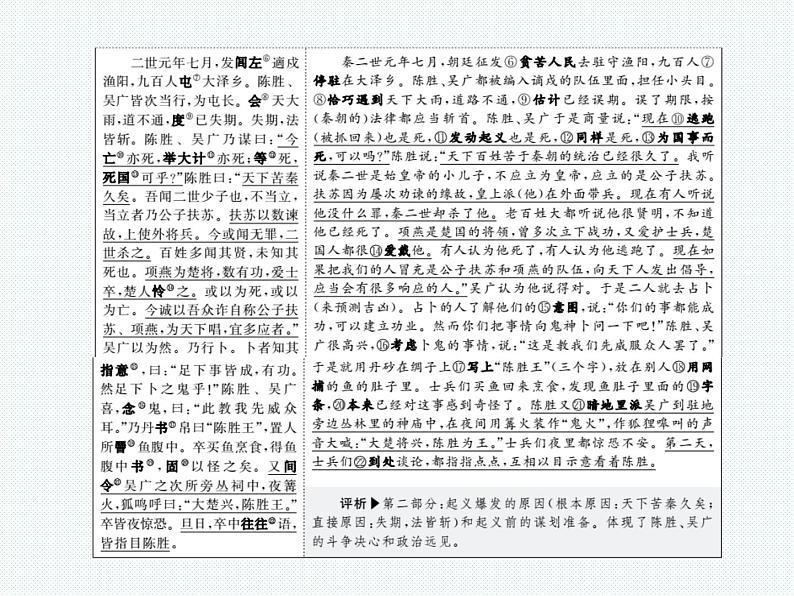 二世元年七月，发闾左⑥適戍
渔阳，九百人屯⑦大泽乡。陈胜、
吴广皆次当行，为屯长。会⑧天大
雨，道不通，度⑨已失期。失期，法
皆斩。陈胜、吴广乃谋曰：“今
亡⑩亦死，举大计⑪亦死；等⑫死，
死国⑬可乎？”陈胜曰：“天下苦秦
久矣。吾闻二世少子也，不当立，
当立者乃公子扶苏。扶苏以数谏
故，上使外将兵。今或闻无罪，二
世杀之。百姓多闻其贤，未知其
死也。项燕为楚将，数有功，爱士
卒，楚人怜⑭之。或以为死，或以
为亡。今诚以吾众诈自称公子扶
苏、项燕，为天下唱，宜多应者。”
吴广以为然。乃行卜。卜者知其
指意⑮，曰：“足下事皆成，有功。
然足下卜之鬼乎！”陈胜、吴广
喜，念⑯鬼，曰：“此教我先威众
耳。”乃丹书⑰帛曰“陈胜王”，置人
所罾⑱鱼腹中。卒买鱼烹食，得鱼
腹中书⑲，固⑳以怪之矣。又间
令㉑吴广之次所旁丛祠中，夜篝
火，狐鸣呼曰：“大楚兴，陈胜王。”
卒皆夜惊恐。旦日，卒中往往㉒语，
皆指目陈胜。
秦二世元年七月，朝廷征发⑥贫苦人民去驻守渔阳，九百人⑦
停驻在大泽乡。陈胜、吴广都被编入谪戍的队伍里面，担任小头目。
⑧恰巧遇到天下大雨，道路不通，⑨估计已经误期。误了期限，按
(秦朝的)法律都应当斩首。陈胜、吴广于是商量说：“现在⑩逃跑
(被抓回来)也是死，⑪发动起义也是死，⑫同样是死，⑬为国事而
死，可以吗？”陈胜说：“天下百姓苦于秦朝的统治已经很久了。我听
说秦二世是始皇帝的小儿子，不应立为皇帝，应立的是公子扶苏。
扶苏因为屡次劝谏的缘故，皇上派(他)在外面带兵。现在有人听说
他没什么罪，秦二世却杀了他。老百姓大都听说他很贤明，不知道
他已经死了。项燕是楚国的将领，曾多次立下战功，又爱护士兵，楚
国人都很⑭爱戴他。有人认为他死了，有人认为他逃跑了。现在如
果把我们的人冒充是公子扶苏和项燕的队伍，向天下人发出倡导，
应当会有很多响应的人。”吴广认为他说得对。于是二人就去占卜
(来预测吉凶)。占卜的人了解他们的⑮意图，说：“你们的事都能成
功，可以建立功业。然而你们把事情向鬼神卜问一下吧！”陈胜、吴
广很高兴，⑯考虑卜鬼的事情，说：“这是教我们先威服众人罢了。”
于是就用丹砂在绸子上⑰写上“陈胜王”(三个字)，放在别人⑱用网
捕的鱼的肚子里。士兵们买鱼回来烹食，发现鱼肚子里面的⑲字
条，⑳本来已经对这事感到奇怪了。陈胜又㉑暗地里派吴广到驻地
旁边丛林里的神庙中，在夜间用篝火装作“鬼火”，作狐狸嗥叫的声
音大喊：“大楚将兴，陈胜为王。”士兵们夜里都惊恐不安。第二天，
士兵们㉒到处谈论，都指指点点，互相以目示意看着陈胜。
评析▶第二部分：起义爆发的原因(根本原因：天下苦秦久矣；
直接原因：失期，法皆斩)和起义前的谋划准备。体现了陈胜、吴广
的斗争决心和政治远见。